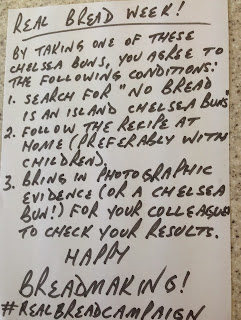 REAL BREAD WEEK!
BY TAKING ONE OF THESE
CHELSEA BUNS, YOU AGREE TO
THE FOLLOWING CONDITIONS:
1. SEARCH FOR "NO BREAD
IS AN ISLAND CHELSEA BUNS"
2. FOLLOW THE RECIPE AT
HOME (PREFERABLY WITH
CHILDREN).
3. BRING IN PHOTOGRAPHIC
EVIDENCE (OR A CHELSEA
BUN!) FOR YOUR COLLEAGUES
TO CHECK YOUR RESULTS.
HAPPY
BREADMAKING!
#REALBREADCAMPAIGN